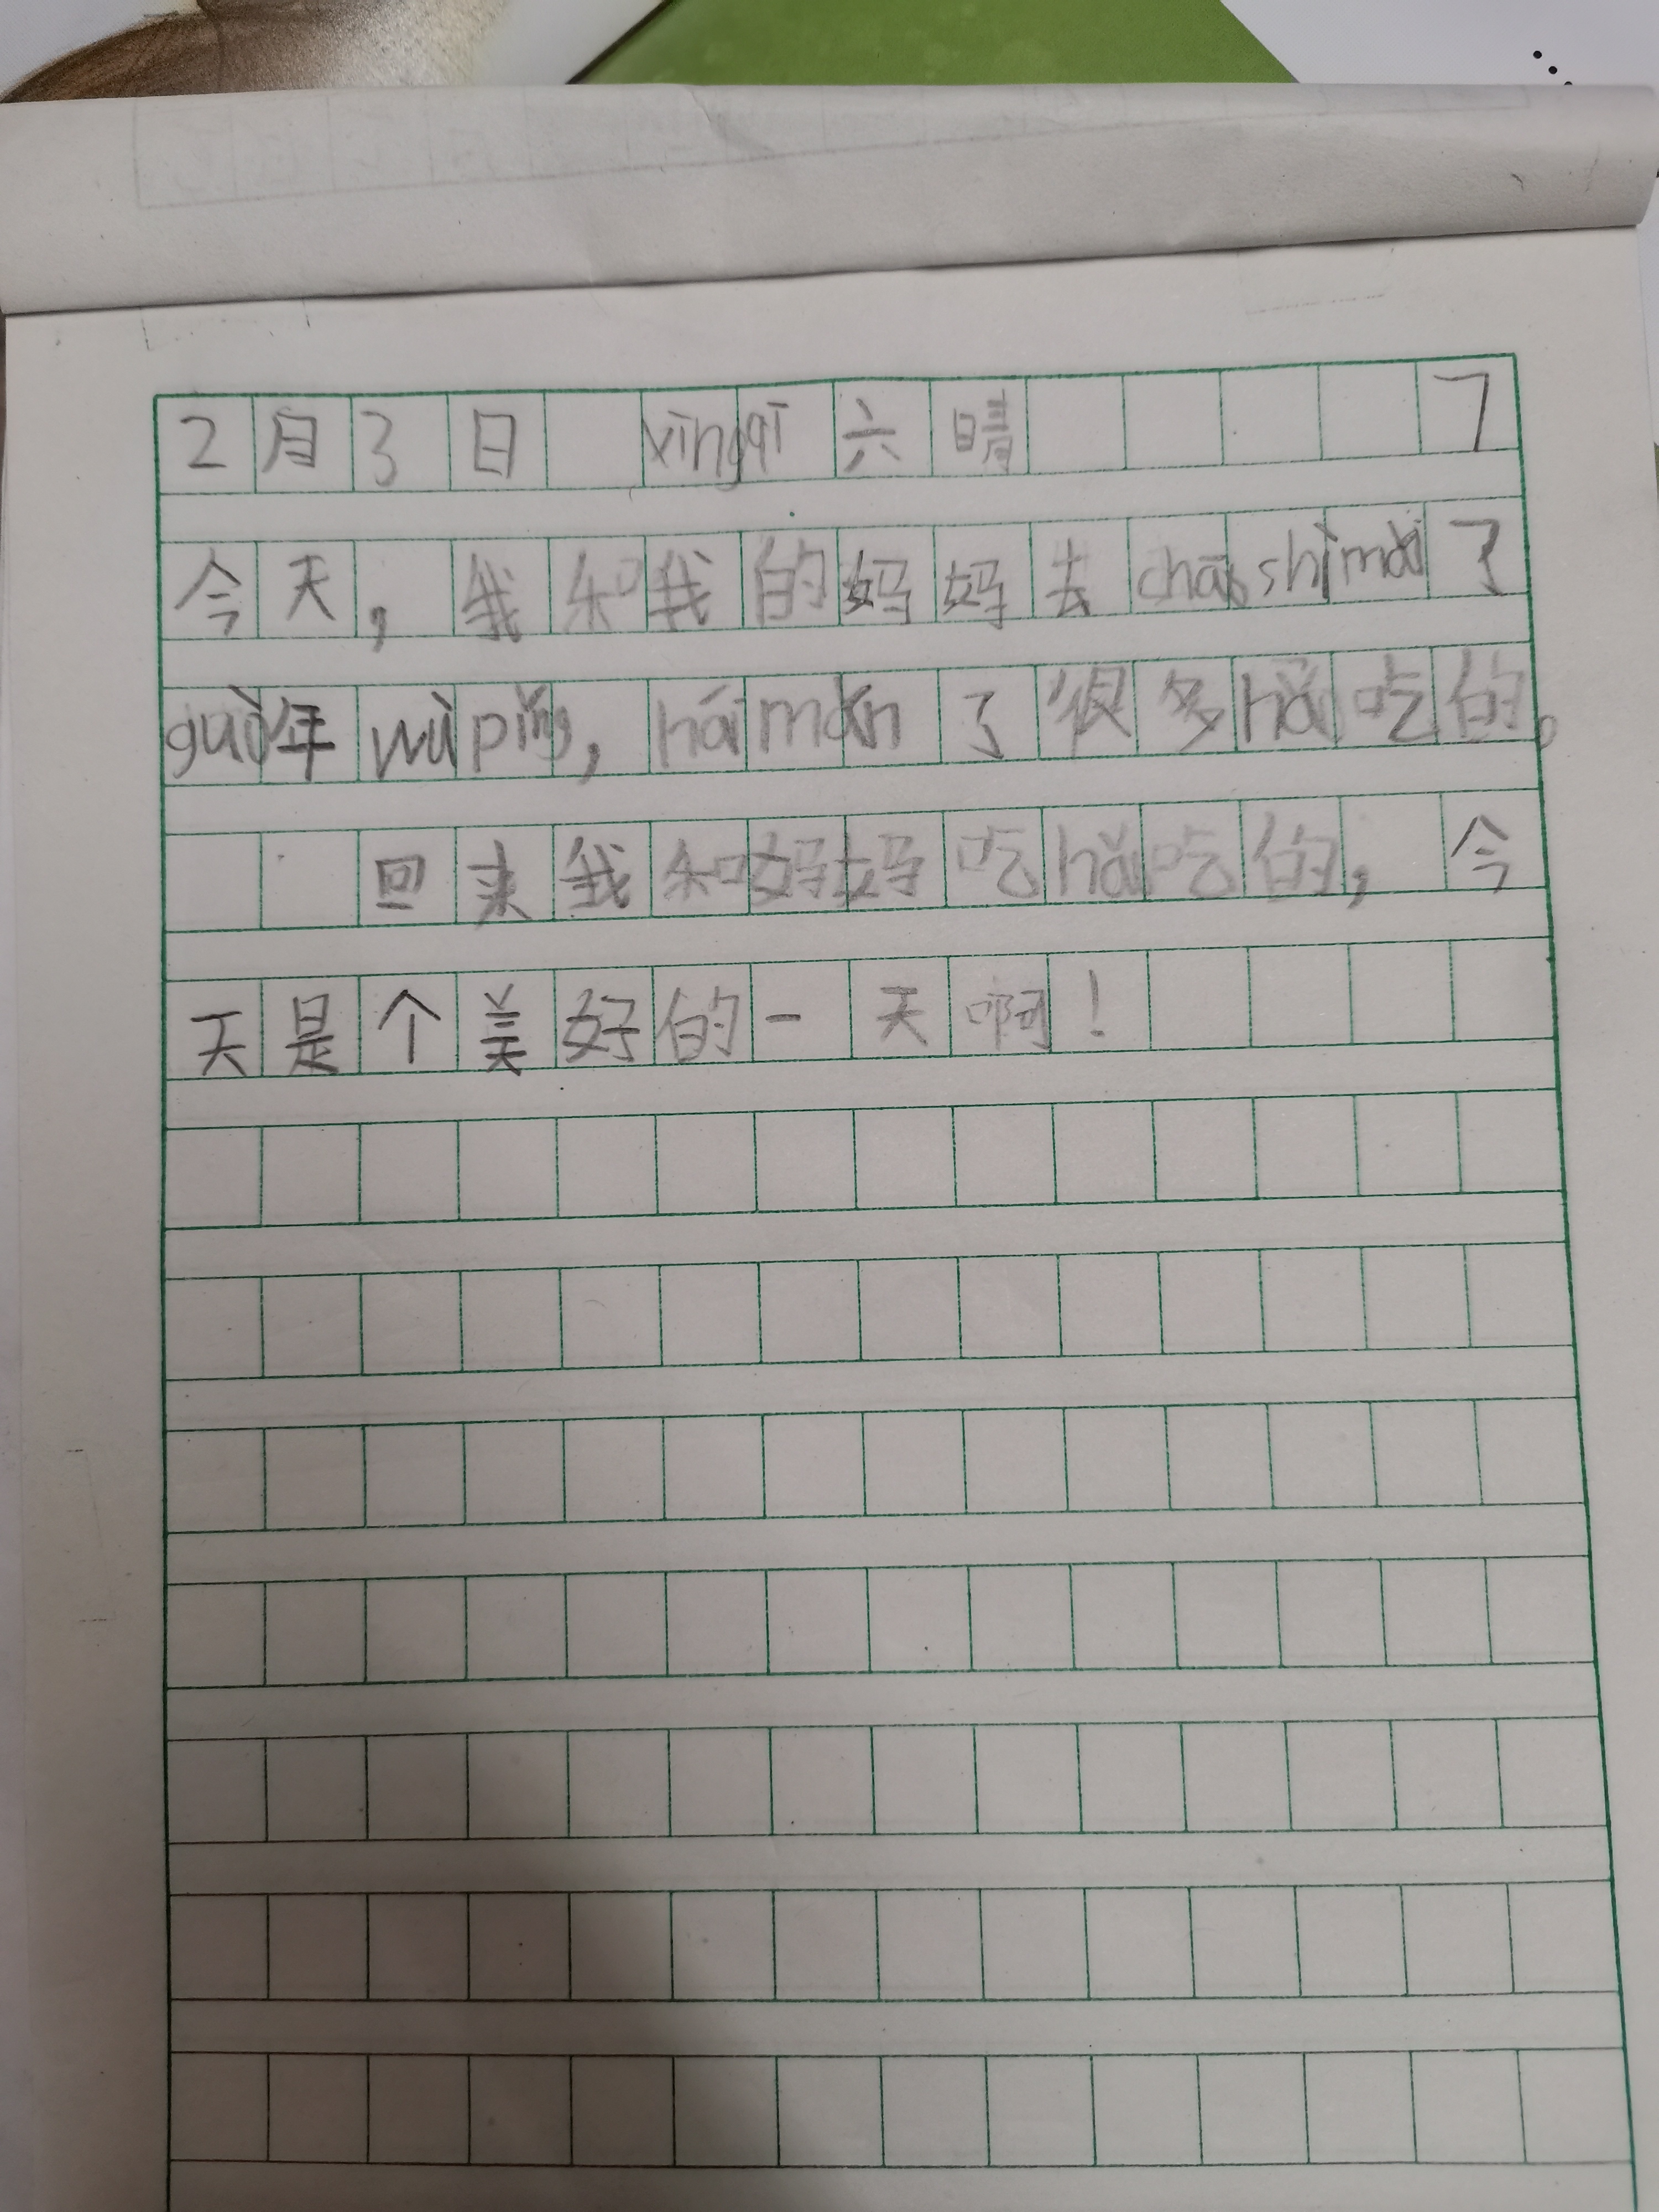 2月3日 xīngqī六晴 7
今天，我和我的妈妈去chāoshìmǎi了
guò年wùpǐng，háimǎn了很多hǎo吃的。
回来我和妈妈吃hǎo吃的，今
天是个美好的一天啊！